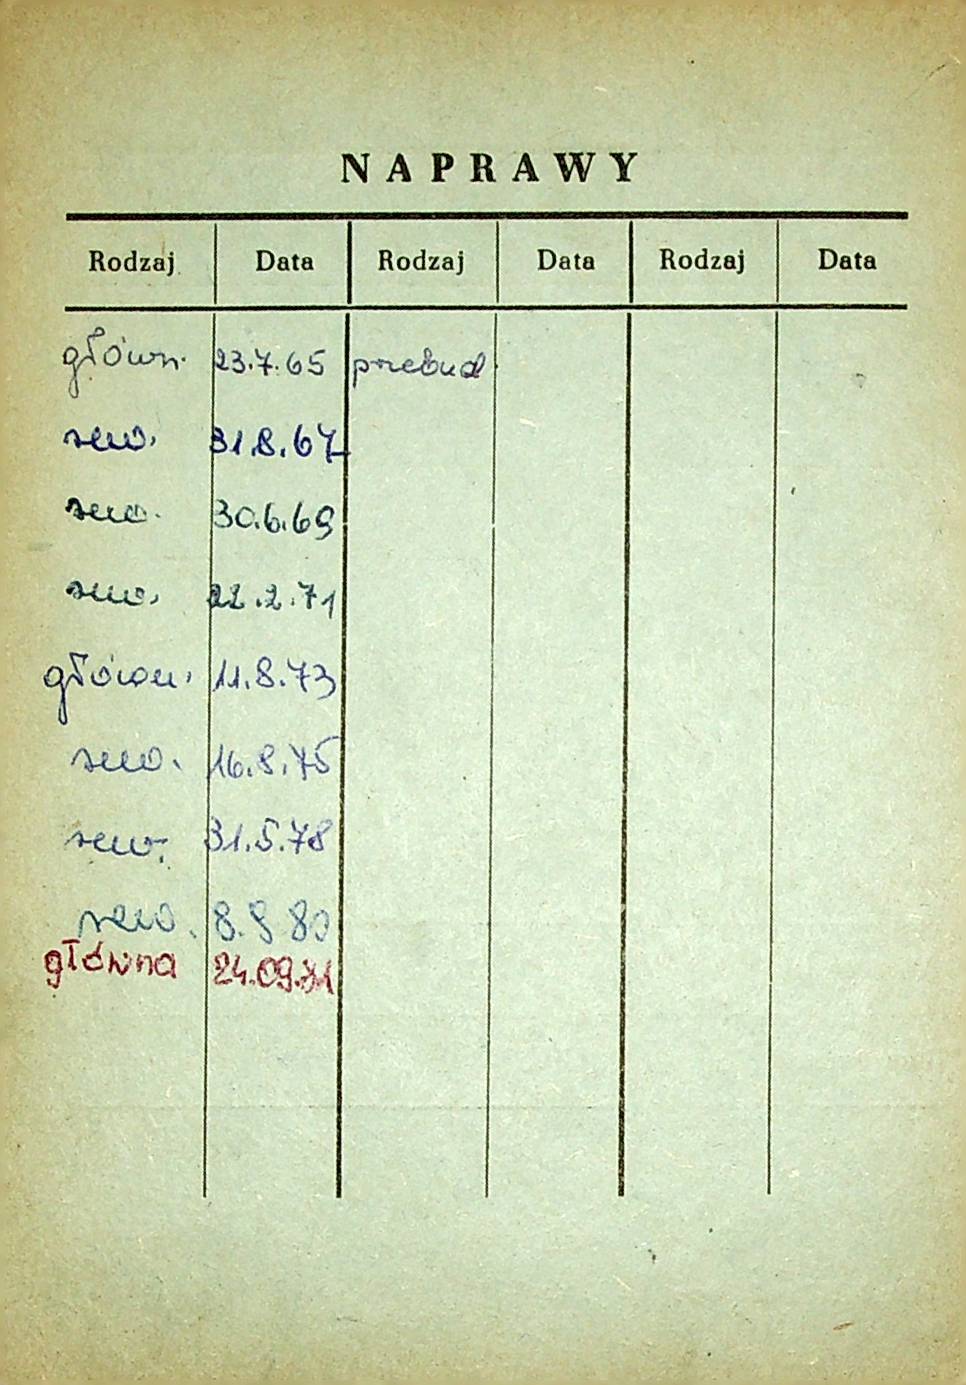 NAPRAWY
Rodzaj Data Rodzaj Data Rodzaj Data
główn. 23.7.65 przebud
rew. 31.8.67
rew. 30.6.69
rew. 22.2.71
główn. 11.8.73
rew. 16.8.75
rew. 31.5.78
rew. 8.9 80
główna 24.09.81